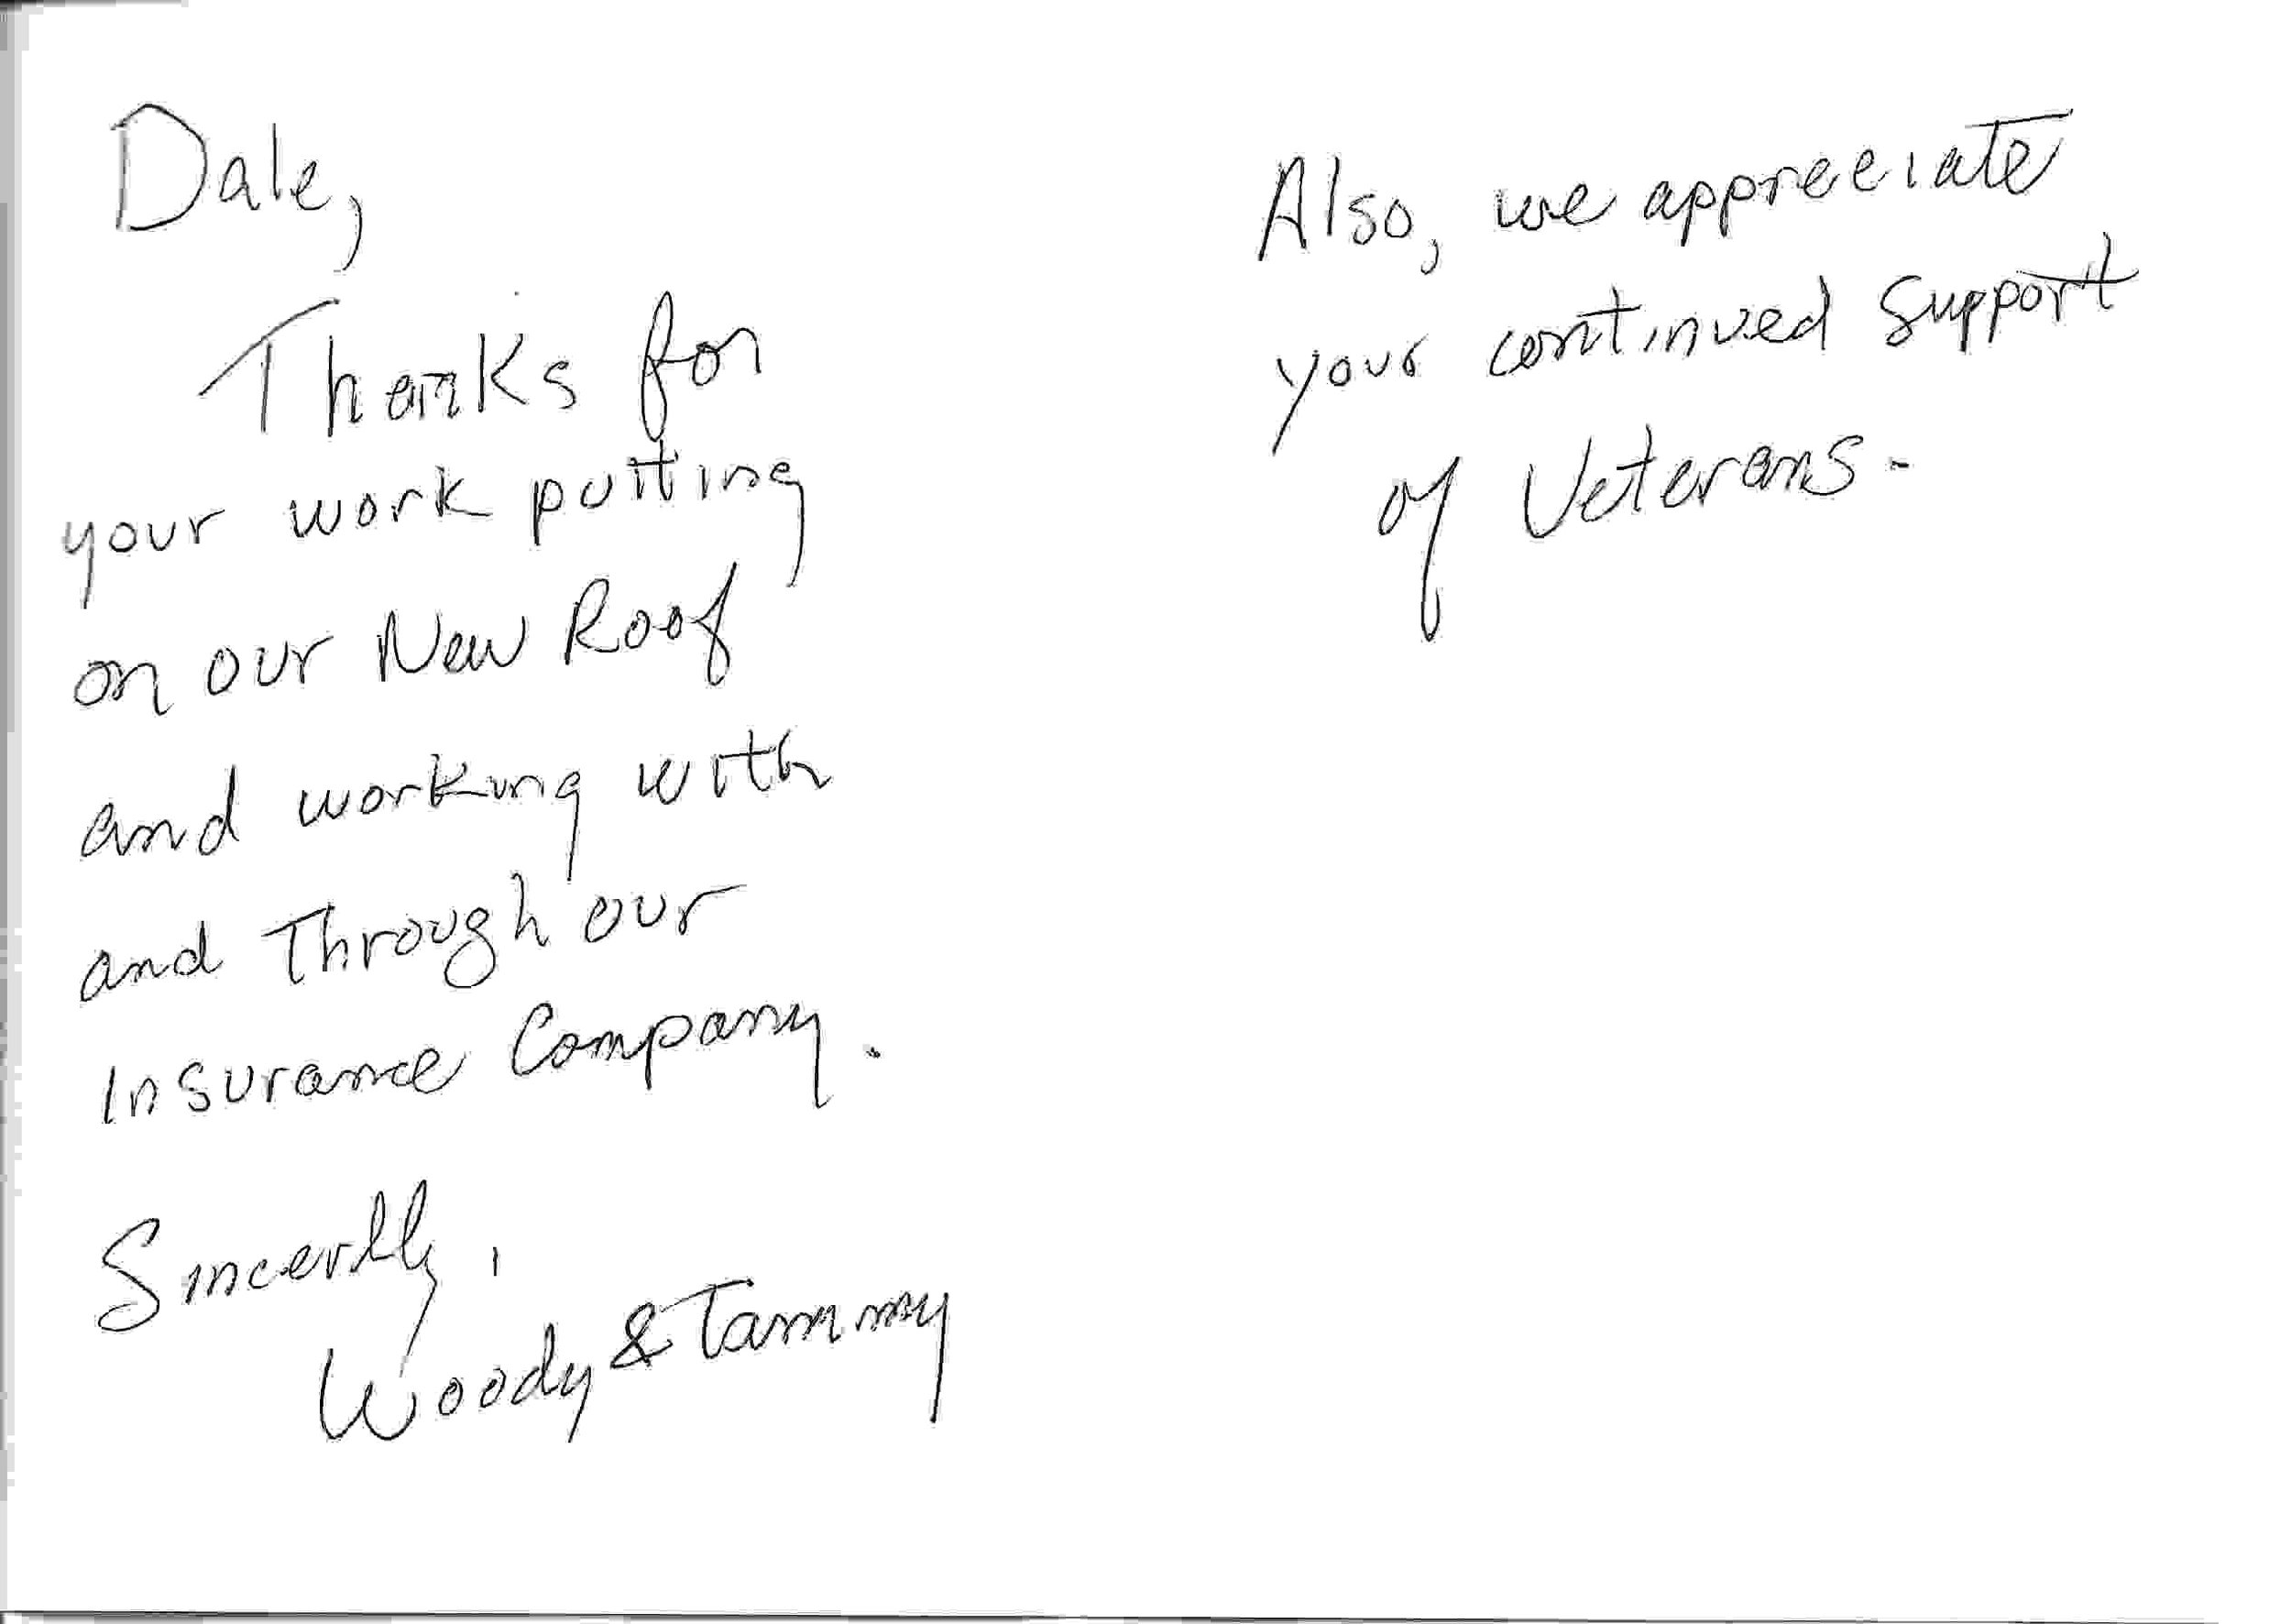 Dale,
Thanks for
your work putting
on our New Roof
and working with
and Through our
Insurance Company.
Sincerlly,
Woody & Tammy
Also, we appreciate
your continued support
of Veterans.